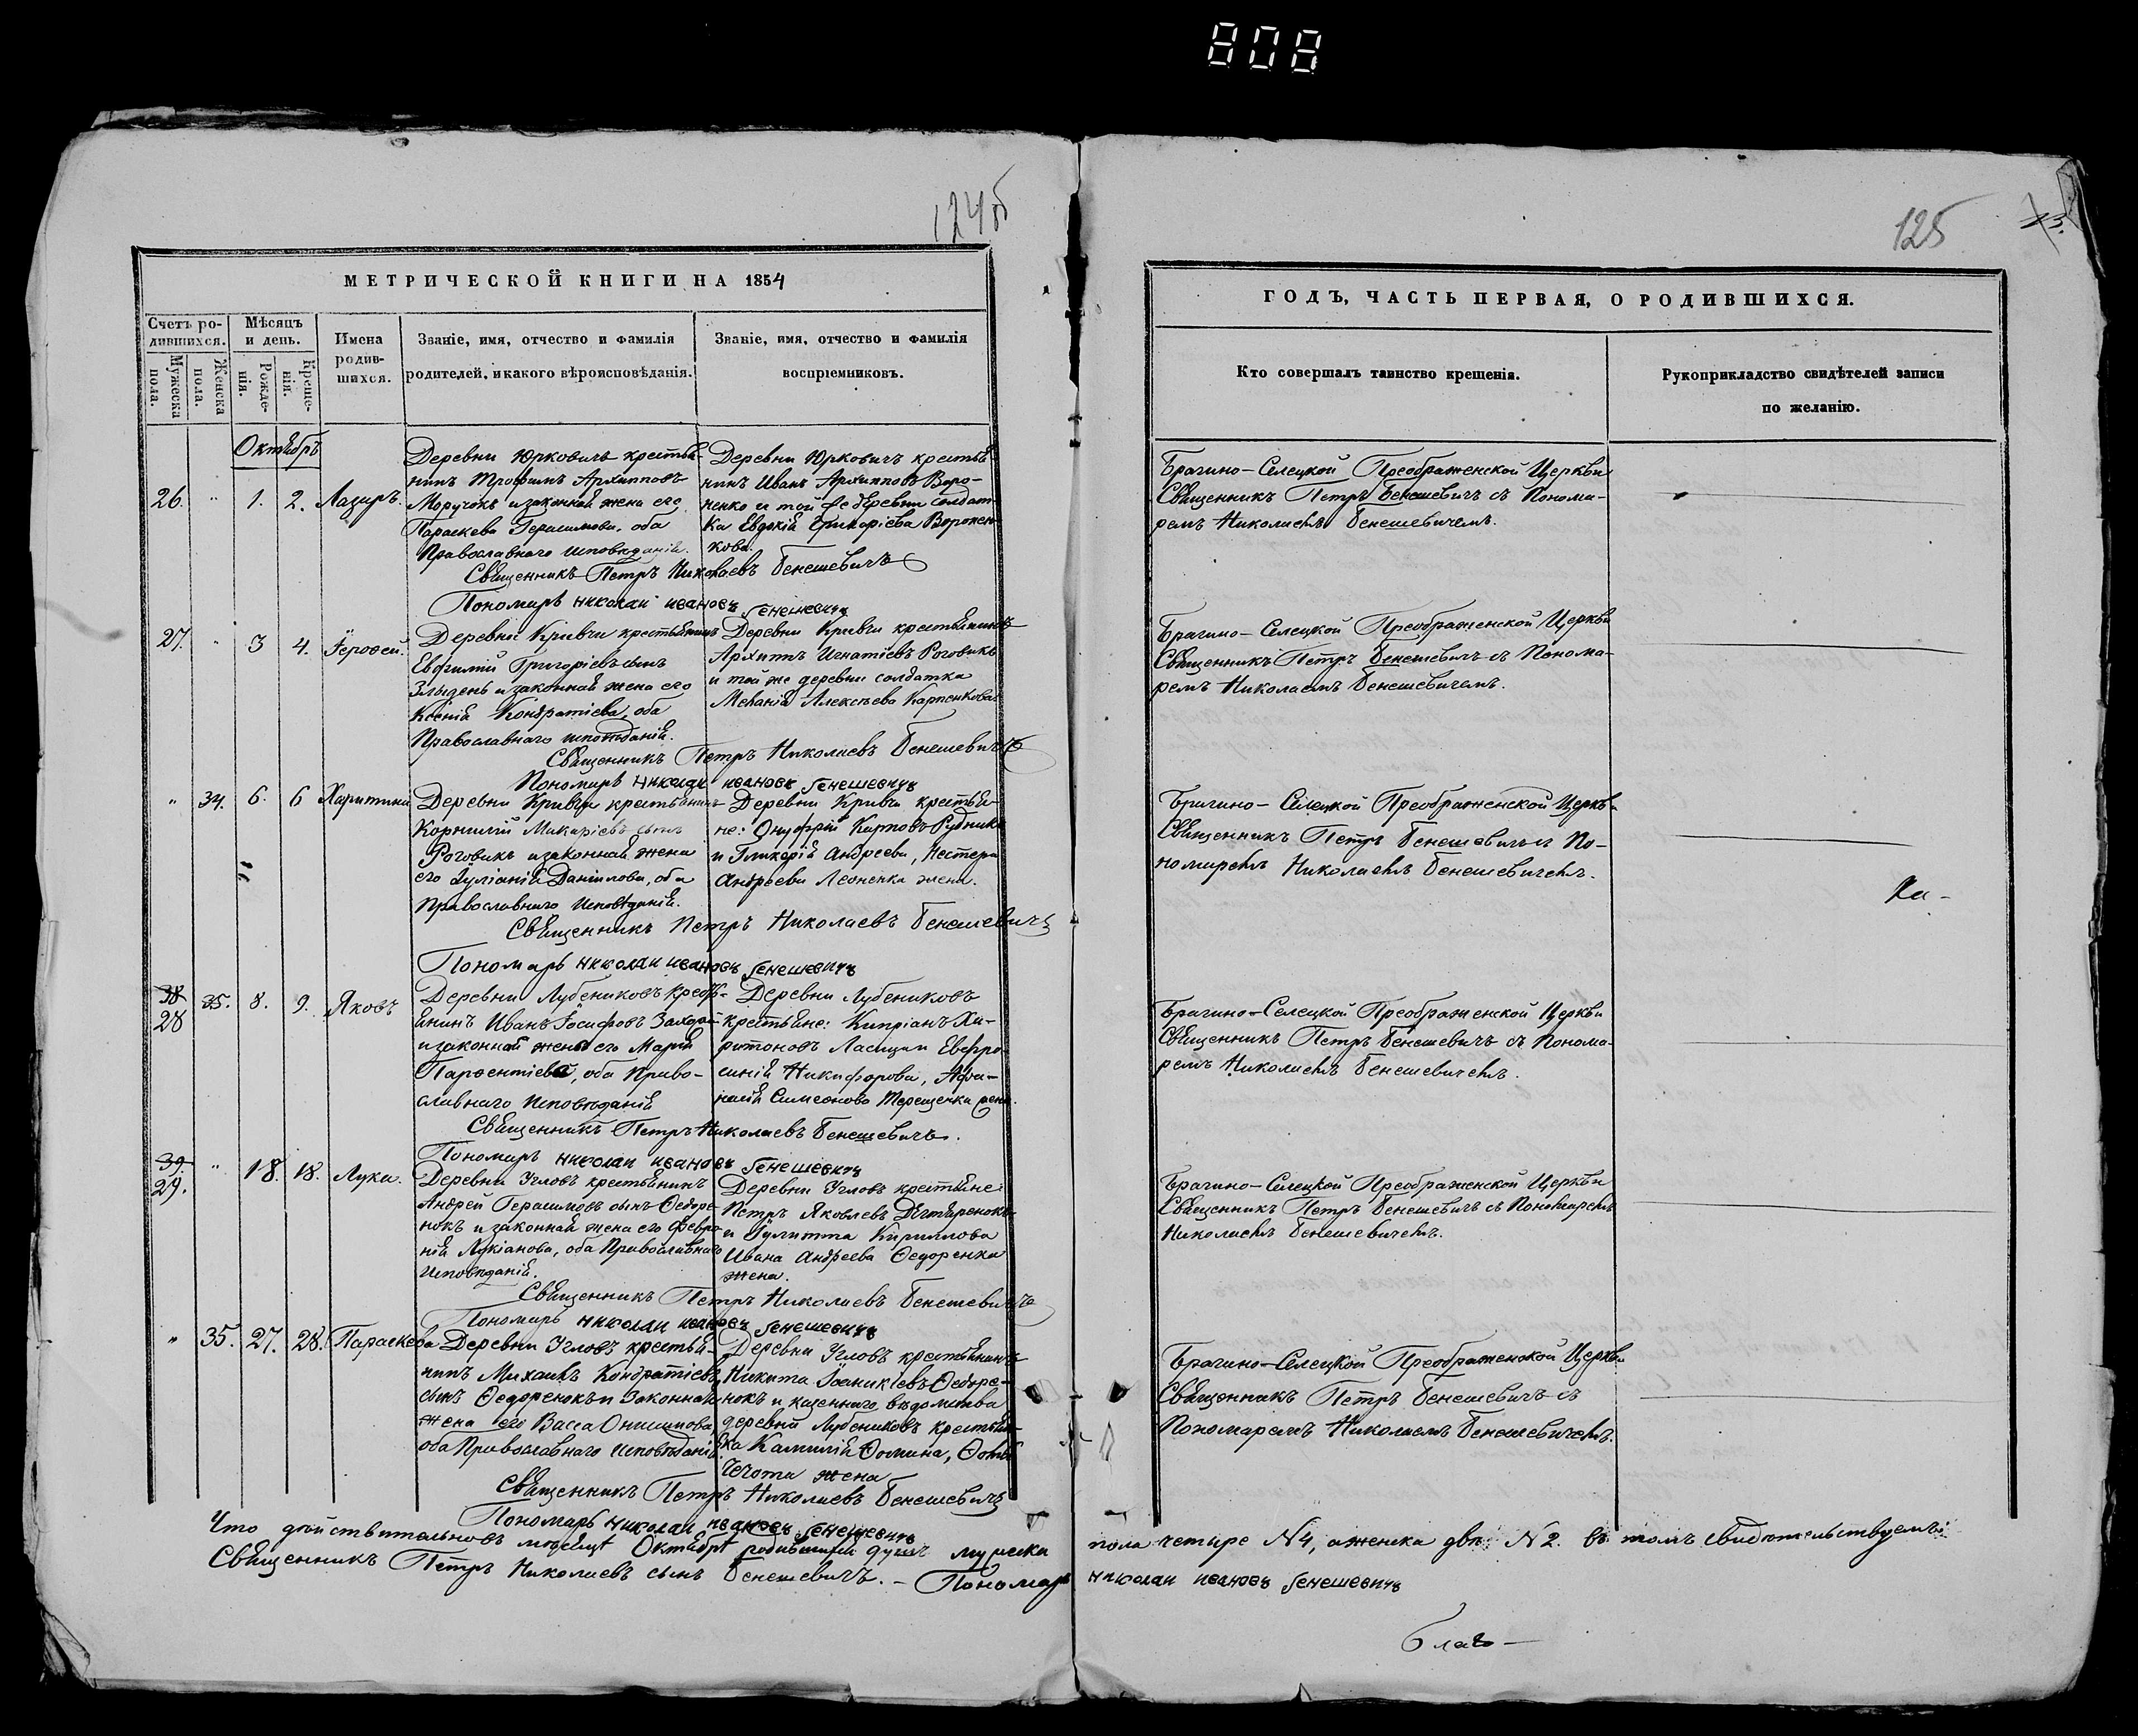 808
124об
125
МЕТРИЧЕСКОЙ КНИГИ НА 1854
Счетъ родившихся.
Мужеска пола.
Женска пола.
Мѣсяцъ и день.
Рожденія.
Крещенія.
Имена родившихся.
Званіе, имя, отчество и фамилія
родителей, и какого вѣроисповѣданія.
Званіе, имя, отчество и фамилія
воспріемниковъ.
Октябрь
26. " 1. 2. Лазарь.
Деревни Юрковичъ крестья-
нинъ Трофимъ Архиповъ
Моручокъ и законная жена его
Параскева Герасимова, оба
Православнаго исповѣданія.
Деревни Юрковичъ крестья-
нинъ Иванъ Архиповъ Воро-
ненко и той же деревни солдат-
ка Евдокія Григоріева Воронен-
кова.
Священникъ Петръ Николаевъ Бенешевичъ
Пономарь николаи ивановъ бенешевичъ
27. " 3 4. Іероѳей.
Деревни Кривчи крестьянинъ
Евѳимій Григоріевъ сынъ
Злыдень и законная жена его
Ксенія Кондратіева, оба
Православнаго исповѣданія.
Деревни Кривчи крестьянинъ
Архипъ Игнатіевъ Роговикъ
и той же деревни солдатка
Меланія Алексѣева Карпенкова
Священникъ Петръ Николаевъ Бенешевичъ
Пономарь николаи ивановъ бенешевичъ
" 34. 6. 6 Харитина
Деревни Кривчи крестьянинъ
Корнилій Макаріевъ сынъ
Роговикъ и законная жена
его Іуліанія Даніилова, оба
Православнаго исповѣданія.
Деревни Кривчи крестья-
не: Онуфрій Карповъ Рудникъ
и Гликерія Андреева, Нестера
Андреева Леоненка жена.
Священникъ Петръ Николаевъ Бенешевичъ
Пономарь николаи ивановъ бенешевичъ
38 35. 8. 9. Яковъ
28
Деревни Лубениковъ крест-
янинъ Иванъ Іосифовъ
и законная жена его Марія
Парѳентіева, оба Право-
славнаго исповѣданія
Деревни Лубениковъ
крестьяне: Кипріанъ Ха-
ритоновъ и Евфро-
синія Никифорова, Аѳа-
насія Симеонова Терещенка жена.
Священникъ Петръ Николаевъ Бенешевичъ.
Пономарь николаи ивановъ бенешевичъ
39. " 18. 18. Лука.
29.
Деревни Угловъ крестьянинъ
Андрей Герасимовъ сынъ Ѳедоре-
нокъ и законная жена его Февро-
нія Лукіанова, оба Православнаго
исповѣданія.
Деревни Угловъ крестьяне:
Петръ Яковлевъ Дегтяренокъ
и Іулитта Кириллова
Ивана Андреева Ѳедоренка
жена.
Священникъ Петръ Николаевъ Бенешевичъ
Пономарь николаи ивановъ бенешевичъ
" 35. 27. 28. Параскева
Деревни Угловъ крестья-
нинъ Михаилъ Кондратіевъ
сынъ Ѳедоренокъ и законная
жена его Васса Онисимова
оба Православнаго исповѣданія.
Деревни Угловъ крестьянинъ
Никита Іоаникіевъ Ѳедоре-
нокъ и казеннаго вѣдомства
деревни Лубениковъ крестьян-
ка Камилія Ѳомина, Ѳомы
Чечота жена
Священникъ Петръ Николаевъ Бенешевичъ
Пономарь николаи ивановъ бенешевичъ
ГОДЪ, ЧАСТЬ ПЕРВАЯ, О РОДИВШИХСЯ.
Кто совершалъ таинство крещенія.
Рукоприкладство свидѣтелей записи
по желанію.
Брагино-Селецкой Преображенской Церкви
Священникъ Петръ Бенешевичъ съ Понома-
ремъ Николаемъ Бенешевичемъ.
Брагино-Селецкой Преображенской Церкви
Священникъ Петръ Бенешевичъ съ Понома-
ремъ Николаемъ Бенешевичемъ.
Брагино-Селецкой Преображенской Церкви
Священникъ Петръ Бенешевичъ съ По-
номаремъ Николаемъ Бенешевичемъ.
Ка-
Брагино-Селецкой Преображенской Церкви
Священникъ Петръ Бенешевичъ съ Понома-
ремъ Николаемъ Бенешевичемъ.
Брагино-Селецкой Преображенской Церкви
Священникъ Петръ Бенешевичъ съ Пономаремъ
Николаемъ Бенешевичемъ.
Брагино-Селецкой Преображенской Церкви
Священникъ Петръ Бенешевичъ съ
Пономаремъ Николаемъ Бенешевичемъ.
Что дѣйствительно въ мѣсяцѣ Октябрѣ родившихся душъ мужеска пола четыре N4, а женска двѣ N2. въ томъ свидѣтельствуемъ:
Священникъ Петръ Николаевъ сынъ Бенешевичъ. - Пономарь николаи ивановъ бенешевичъ
благо-